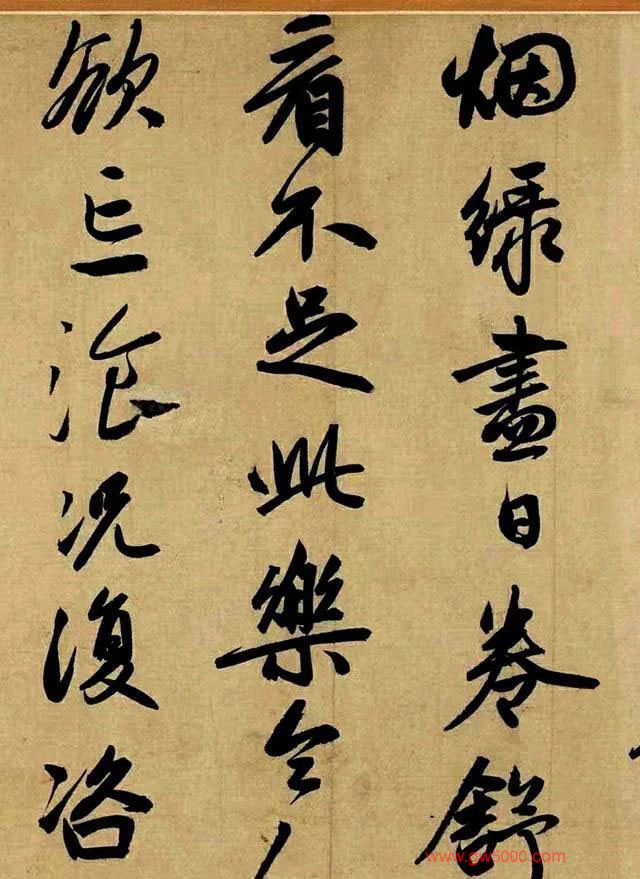 烟綠盡日卷舒
看不足此樂令
欲忘湌況復咨
www.gw5000.com